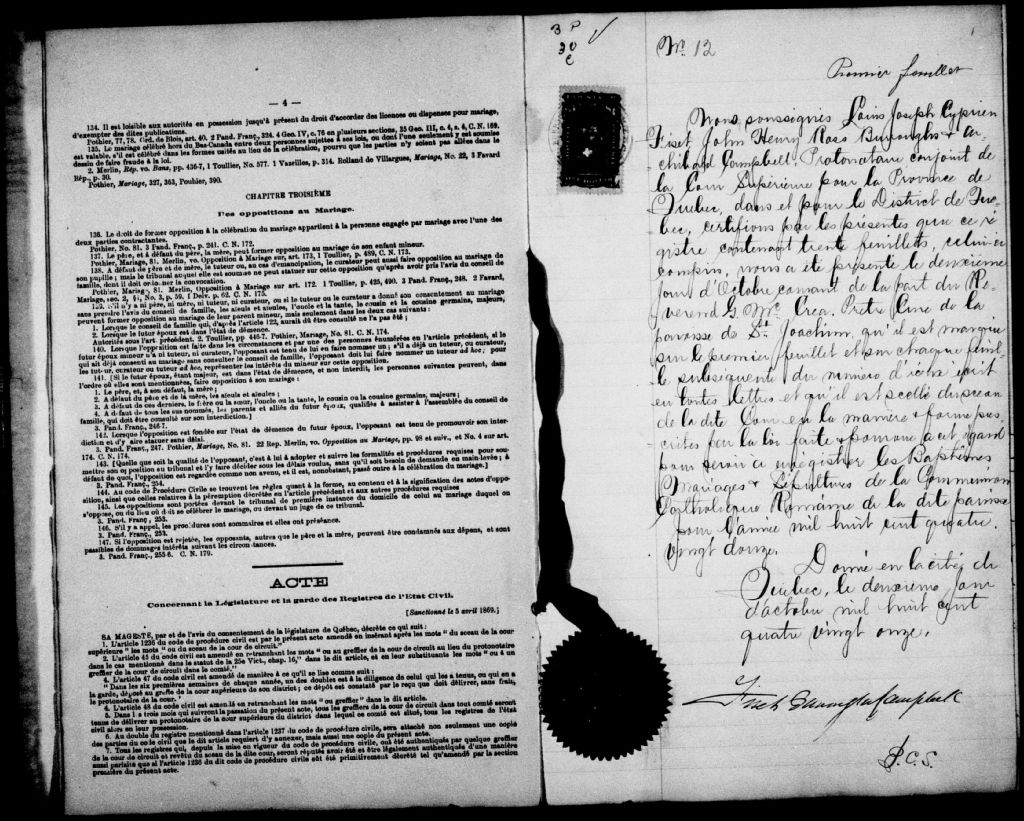 — 4 —
134. Il est loisible aux autorités en possession jusqu'à présent du droit d'accorder des licences ou dispenses pour mariage,
d'exempter des dites publications.
Pothier, 77, 78. Ord. de Blois, art. 40. 2 Pand. Franç., 324. 4 Geo. IV, c. 76 en plusieurs sections, 35 Geo. III, c. 4, s. 4, C. N. 169.
135. Le mariage célébré hors du Bas-Canada entre deux personnes sujettes à ses lois, ou dont l'une seulement y est soumise
est valable, s'il est célébré dans les formes usités au lieu de la célébration, pourvu que les parties n'y soient pas allées dans le
dessin de faire fraude à la loi.
2. Merlin, Rép. vo. Bans, pp. 436-7, 1 Toullier, No. 577. 1 Vazilles, p. 314. Rolland de Villargues, Mariage, No. 22, 3 Favard
Rép., p. 30.
Pothier, Mariage, 327, 363, Pouhier, 390.
CHAPITRE TROISIÈME
Des oppositions au Mariage.
136. Le droit de former opposition à la célébration du mariage appartient à la personne engagée par mariage avec l'une des
deux parties contractantes.
Pothier, No. 81. 3 Pand. Franç., p. 241. C. N. 172.
137. Le père, et à défaut du père, la mère, peut former opposition au mariage de son enfant mineur.
Pothier, Mariage, 81. Merlin, vo. Opposition à Mariage, sur art. 173, 1 Toullier, p. 489, C. N. 173.
138. A défaut de père et de mère, le tuteur, ou, au cas d'émancipation, le curateur peut aussi faire opposition au mariage de
son pupille; mais le tribunal auquel elle est soumise ne peut statuer sur cette opposition qu'après avoir pris l'avis du conseil de
famille, dont il doit ordonner la convocation.
Pothier, Mariage, 81. Merlin, Opposition à Mariage sur art. 172. 1 Toullier, p. 425, 490. 3 Pand. Franç., 248. 2 Favard,
Mariage, sec. 2, §1, No. 3, p. 59. 1 Delv. p. 62. C. N. 175.
139. S'il n'y a ni père, ni mère, ni tuteur, ni curateur, ou si le tuteur ou le curateur a donné son consentement au mariage
sans prendre l'avis du conseil de famille, les aïeuls et aïeules, l'oncle et la tante, le cousin et la cousine germains, majeurs,
peuvent former opposition au mariage de leur parent mineur, mais seulement dans les deux cas suivants:
1. Lorsque le conseil de famille qui, d'après l'article 122, aurait dû être consulté ne l'a pas été;
2. Lorsque le futur époux est dans l'état de démence.
Autorités sous l'art précédent. 2 Toullier, pp 446-7. Pothier, Mariage, No. 81. C. N. 174.
140. Lorsque l'opposition est faite dans les circonstances et par une des personnes énumérées en l'article précédent, si le
futur époux mineur n'a ni tuteur, ni curateur, l'opposant est tenu de lui en faire nommer un; s'il a déjà un tuteur, ou curateur,
qui ait déjà consenti au mariage sans consulter le conseil de famille, l'opposant doit lui faire nommer un tuteur ad hoc; pour
les tuteur, curateur ou tuteur ad hoc, représenter les intérêts du mineur sur cette opposition.
141. [Si le futur époux, étant majeur, est dans l'état de démence, et non interdit, les personnes suivantes peuvent, dans
l'ordre où elles sont mentionnées, faire opposition à son mariage:
1. Le père, et, à son défaut, la mère;
2. A défaut du père et de la mère, les aïeuls et aïeules;
3. A défaut de ces derniers, le frère ou la sœur, l'oncle ou la tante, le cousin ou la cousine germains, majeurs;
4. A défaut de tous les sus nommés, les parents et alliés du futur époux, qualifiés à assister à l'assemblée du conseil de
famille, qui doit être consulté sur son interdiction.]
3. Pand. Franç., 246-7.
142. Lorsque l'opposition est fondée sur l'état de démence du futur époux, l'opposant est tenu de promouvoir son inter-
diction et d'y faire statuer sans délai.
3. Pand. Franç., 247. Pothier, Mariage, No. 81. 22 Rep. Merlin, vo. Opposition au Mariage, pp. 98 et suiv., et No. 4 sur art.
174. C. N. 174.
143. [Quelle que soit la qualité de l'opposant, c'est à lui à adopter et suivre les formalités et procédures requises pour sou-
mettre son opposition au tribunal et l'y faire décider sous les délais voulus, sans qu'il soit besoin de demande en main-levée; à
défaut de quoi, l'opposition est regardée comme non avenue, et il est, nonobstant, passé outre à la célébration du mariage.]
3. Pand. Franç., 254.
144. Au code de Procédure Civile se trouvent les règles quant à la forme, au contenu et à la signification des actes d'oppo-
sition, ainsi que celles relatives à la péremption décrétée en l'article précédent et aux autres procédures requises
145. Les oppositions sont portées devant le tribunal de première instance du domicile de celui au mariage duquel on
s'oppose, ou du lieu où doit se célébrer le mariage, ou devant un juge de ce tribunal.
3. Pand. Franç., 253.
146. S'il y a appel, les procédures sont sommaires et elles ont préséance.
3. Pand. Franç., 253.
147. Si l'opposition est rejetée, les opposants, autres que le père et la mère, peuvent être condamnés aux dépens, et sont
passibles de dommages intérêts suivant les circonstances.
3. Pand. Franç., 255-6. C. N. 179.
ACTE
Concernant la Législature et la garde des Registres de l'Etat Civil.
[Sanctionné le 5 avril 1869.]
SA MAGESTÉ, par et de l'avis du consentement de la législature de Québec, décrète ce qui suit:
1. L'article 1236 du code de procédure civil est par le présent acte amendé en insérant après les mots "du sceau de la cour
supérieure" les mots "ou du sceau de la cour de circuit."
2. L'article 45 du code civil est amendé en retranchant les mots "ou au greffier de la cour de circuit au lieu du protonotaire
dans le cas mentionné dans le statut de la 25e Vict., chap. 16," dans le dit article, et en leur substituants les mots "ou à un
greffier de la cour de circuit dans le comté."
4. L'article 47 du code civil est amendé de manière à ce qu'il se lise comme suit:
"Dans les six premières semaines de chaque année, un des doubles est à la diligence de celui qui les a tenus, ou qui en a
la garde, déposé au greffe de la cour supérieure de son district; ce dépôt est constaté par le reçu que doit délivrer, sans frais,
le protonotaire de la cour."
4. L'article 48 du code civil est amendé en retranchant les mots "ou greffier" dans le dit article.
5. Dans les trois mois qui suivront la passation du présent acte, tous les greffiers de la cour de circuit dans tout comté seront
tenus de délivrer au protonotaire de la cour supérieure du district dans lequel ce comté est situé, tous les registres de l'état
civil alors en leur possession.
6. Au double du registre mentionné dans l'article 1237 du code de procédure civile, sera attaché non seulement une copie
des parties du code civil que le dit article requiert d'y annexer, mais aussi une copie du présent acte.
7. Tous les registres qui, depuis la mise en vigueur du code de procédure civile, ont été authentiqués par quelque greffier
de la cour de circuit et revêtu du sceau de la dite cour, seront réputés avoir été et être légalement authentiqués d'une manière
aussi parfaite que si l'article 1236 du dit code de procédure civile eût été primitivement décrété tel qu'amendé par la section
première du présent acte.
3 P
30
c
No. 12
Premier feuillet
Nous soussignés Louis Joseph Cyprien
Fiset John Henry Ross Burroughs & Ar
chibald Campbell, Protonotaire conjoint de
la Cour Supérieure pour la Province de
Québec, dans et pour le District de Qué-
bec, certifions par les présentes que ce ré
gistre contenant trente feuillets, celui-ci
compris, nous a été présenté le deuxième
jour d'Octobre courant de la part du Ré-
verend G. Mc Crea. Prêtre Curé de la
paroisse de St. Joachim, qu'il est marqué
sur le premier feuillet et sur chaque feuil-
le subséquente du numéro d'icelle écrit
en toutes lettres et qu'il est scellé du sceau
de la dite Cour en la manière & forme pres
crites par la loi faite & pourvue à cet égard
pour servir à enrégistrer les Baptêmes
Mariages & Sépultures de la Communion
Catholique Romaine de la dite paroisse
pour l'année mil huit cent quatre
vingt douze.
Donné en la cité de
Québec, le deuxième jour
d'octobre mil huit cent
quatre vingt onze.
Fiset Burroughs Campbell
P.C.S.